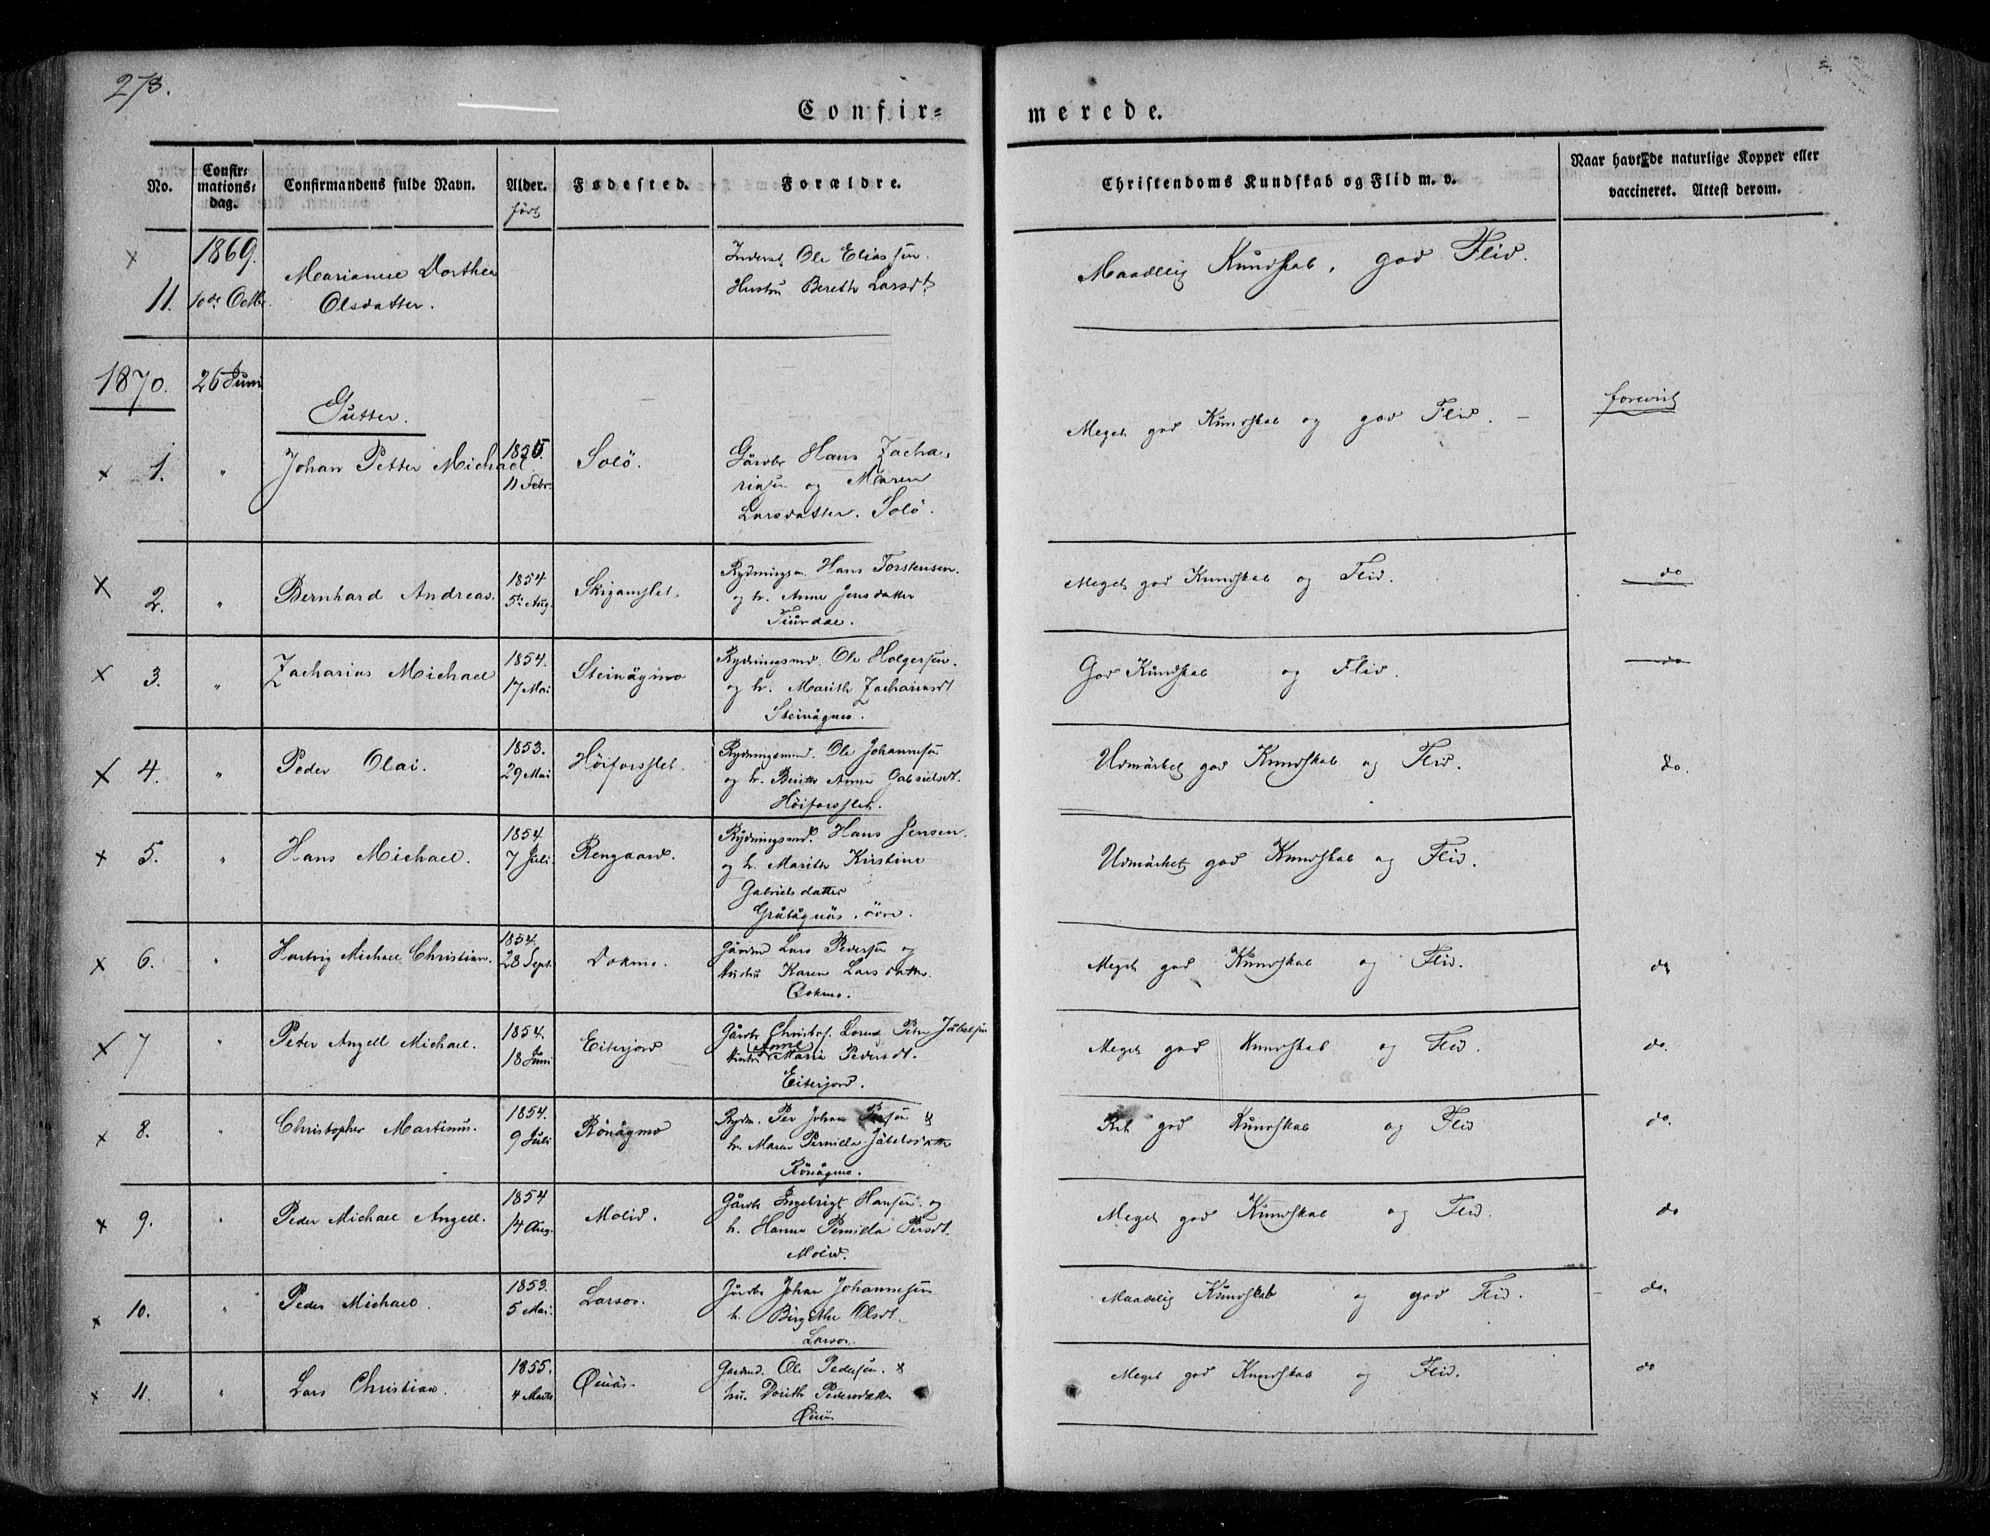 278.
Confir= merede.
No. Confir-mations-dag. Confirmandens fulde Navn. Alder. født Fødested. Forældre. Christendoms Kundskab og Flid m. v. Naar havende naturlige Kopper eller vaccineret. Attest derom.
1869.
11. 10de Octbr. Marianne Dorthea Olsdatter. Inderst Ole Eliassen. Hustru Bereth Larsdt. Maadelig Kundskab, god Flid.
1870. 26 Juni
Gutter.
1. " Johan Petter Michael. 1855. 11 Febr. Solø. Gårdbr Hans Zacha-
riasen og Maren
Larsdatter. Solø. Meget god Kundskab og god Flid. - forevist
2. " Bernhard Andreas. 1854. 5te Aug. Skjgamslet. Rydningsm. Hans Torstensen.
og h. Anne Jensdatter
Tiurdal. Meget god Kundskab og Flid. do
3. " Zacharias Michael 1854. 17 Mai Steinågmo Rydningsmd. Ole Holgersen.
og h. Marith Zachariasdt
Steinågmo. God Kundskab og Flid. do
4. " Peder Olai. 1853. 29 Mai Höiforsslet. Rydningsmd. Ole Johannesen
og h. Berith Anna Gabrielsdt.
Höiforsslet. Udmärket god Kundskab og Flid. do.
5. " Hans Michael. 1854. 7 Juli Rengaard. Rydningsmd. Hans Jensen.
og h. Marith Kirstine
Gabrielsdatter
Gråtågnäs, övre. Udmärket god Kundskab og Flid.
6. " Hartvig Michael Christian. 1854. 28 Sept. Dokmo. Gårdmd Lars Pedersen og
Hustru Karen Larsdatter.
Dokmo. Meget god Kundskab og Flid. do
7 " Peter Angell Michael. 1854. 18 Juni Eiterjord. Gårdbr Christof. Lornd. Petr Jäkelsen
Hustru (Anne) Marie Pedersdt.
Eiterjord. Meget god Kundskab og Flid. do.
8. " Christopher Martinus. 1854. 9 Juli Rönågmo Rydm. Per Johan &
h. Maren Pernilla Jäkelsdatter
Rönågmo. Ret god Kundskab og Flid do.
9. " Peder Michael Angell. 1854 14 Aug. Molid. Gårdbr Ingebrigt Hansen. og
h. Hanna Pernilla Persdt.
Molid. Meget god Kundskab og Flid. do
10. " Peder Michael. 1853. 5 Mai. Larsos. Gårdbr Johan Johannesen
h. Birgithe Olsdt.
Larsos. Maadelig Kundskab og god Flid. do.
11. " Lars Christian. 1855. 4 Marts Øinäs. Gaardmd. Ole Pedersen. &
hu. Dorith Pedersdatter
Øinäs Meget god Kundskab og Flid. do